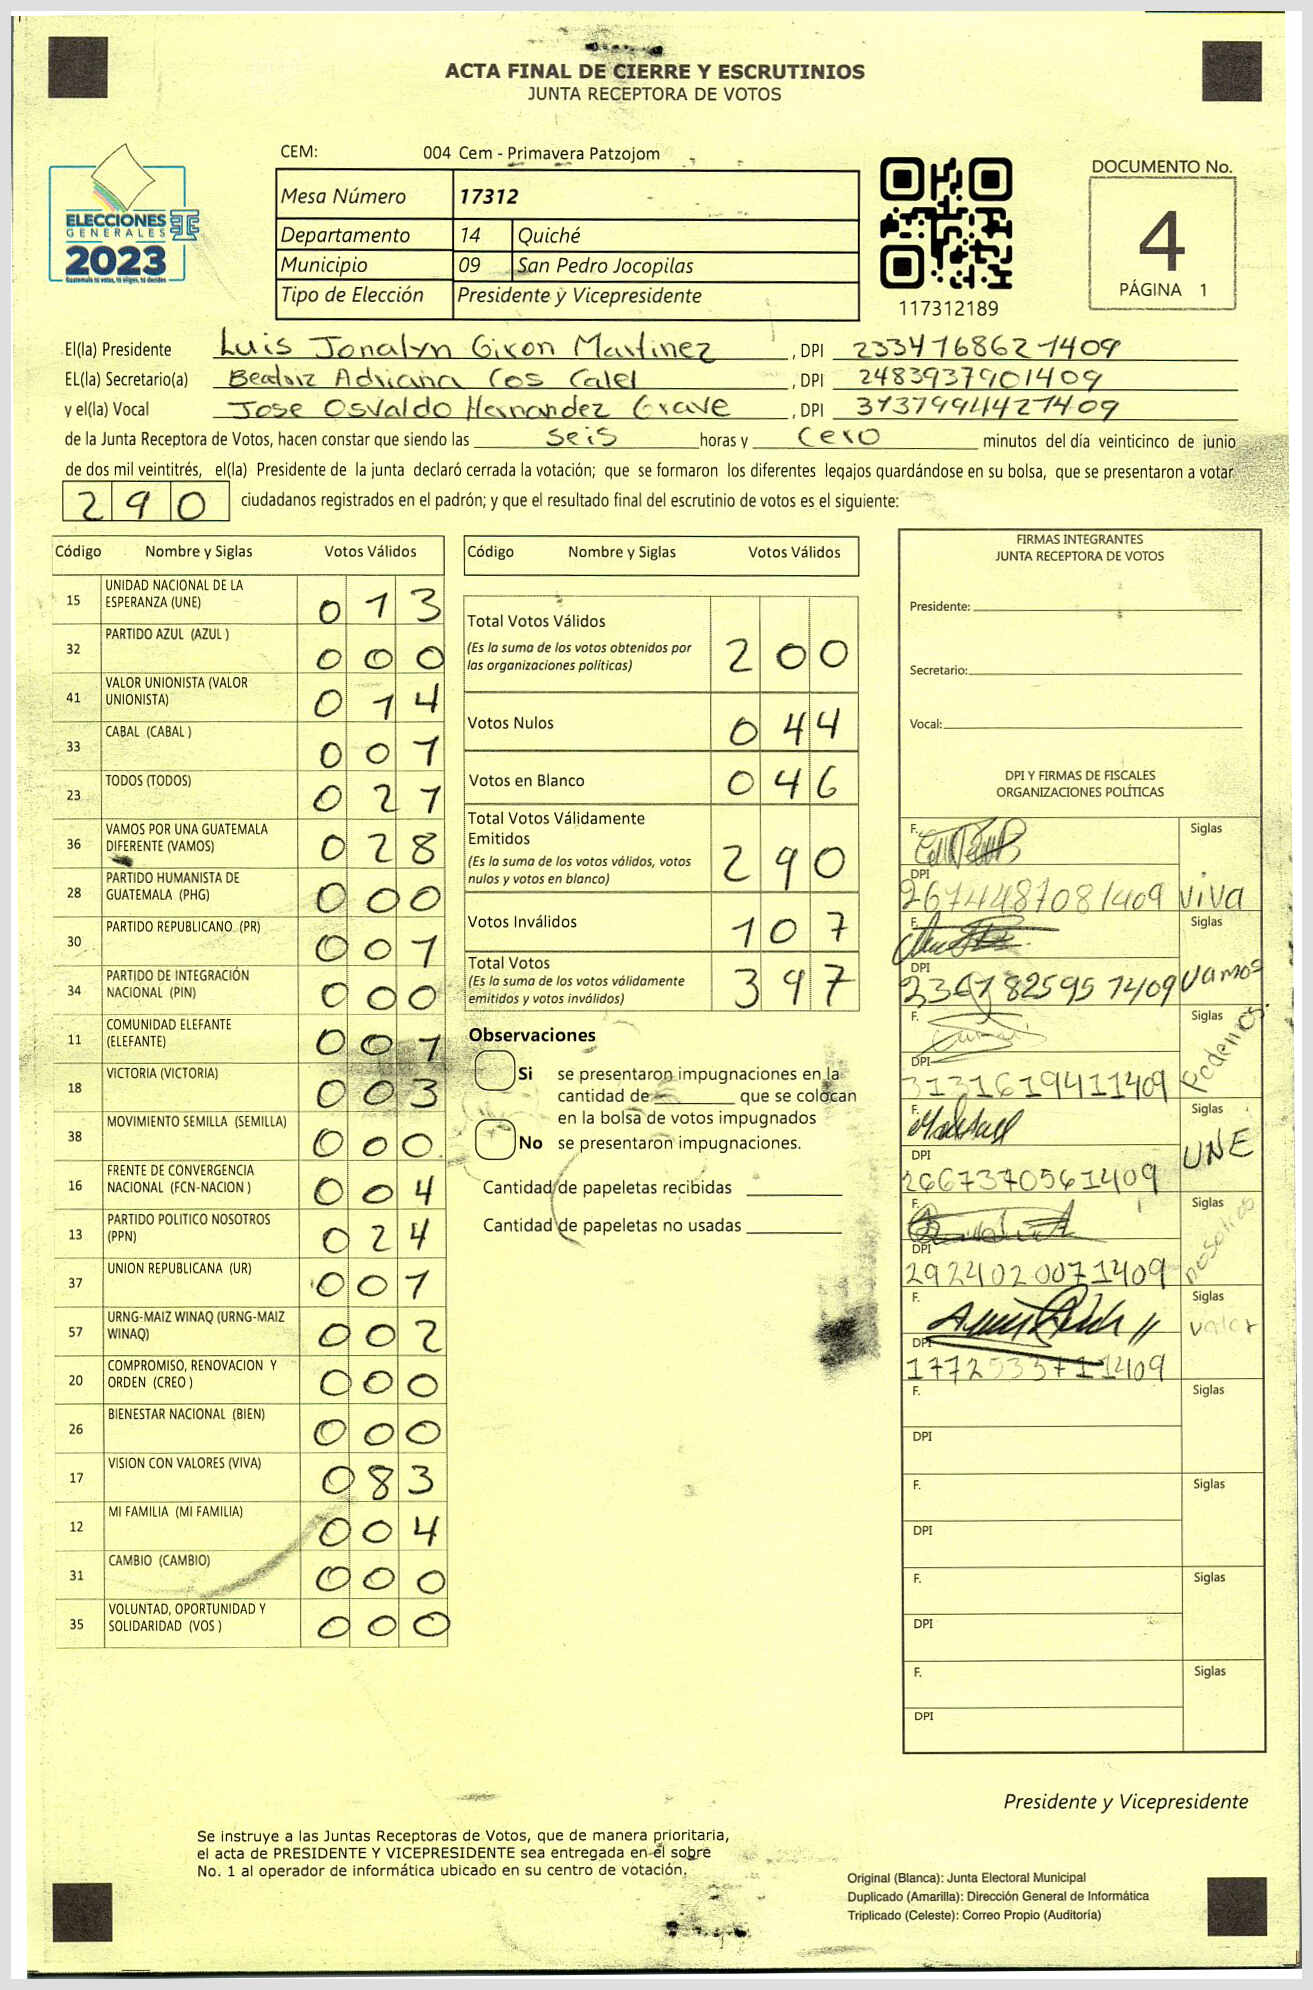 ACTA FINAL DE CIERRE Y ESCRUTINIOS
JUNTA RECEPTORA DE VOTOS
CEM: 004 Cem - Primavera Patzojom
Mesa Número 17312
Departamento 14 Quiché
Municipio 09 San Pedro Jocopilas
Tipo de Elección Presidente y Vicepresidente
ELECCIONES
GENERALES
2023
117312189
DOCUMENTO No.
4
PÁGINA 1
El(la) Presidente Luis Jonalyn Giron Martinez , DPI 2334768621409
EL(la) Secretario(a) Beatriz Adriana Cos Calel , DPI 2483937901409
y el(la) Vocal Jose Osvaldo Hernandez Grave , DPI 3737994421409
de la Junta Receptora de Votos, hacen constar que siendo las seis horas y cero minutos del día veinticinco de junio
de dos mil veintitrés, el(la) Presidente de la junta declaró cerrada la votación; que se formaron los diferentes legajos guardándose en su bolsa, que se presentaron a votar
290 ciudadanos registrados en el padrón; y que el resultado final del escrutinio de votos es el siguiente:
Código Nombre y Siglas Votos Válidos
15 UNIDAD NACIONAL DE LA ESPERANZA (UNE) 013
32 PARTIDO AZUL (AZUL ) 000
41 VALOR UNIONISTA (VALOR UNIONISTA) 014
33 CABAL (CABAL ) 001
23 TODOS (TODOS) 021
36 VAMOS POR UNA GUATEMALA DIFERENTE (VAMOS) 028
28 PARTIDO HUMANISTA DE GUATEMALA (PHG) 000
30 PARTIDO REPUBLICANO (PR) 001
34 PARTIDO DE INTEGRACIÓN NACIONAL (PIN) 000
11 COMUNIDAD ELEFANTE (ELEFANTE) 001
18 VICTORIA (VICTORIA) 003
38 MOVIMIENTO SEMILLA (SEMILLA) 000
16 FRENTE DE CONVERGENCIA NACIONAL (FCN-NACION ) 004
13 PARTIDO POLITICO NOSOTROS (PPN) 024
37 UNION REPUBLICANA (UR) 001
57 URNG-MAIZ WINAQ (URNG-MAIZ WINAQ) 002
20 COMPROMISO, RENOVACION Y ORDEN (CREO ) 000
26 BIENESTAR NACIONAL (BIEN) 000
17 VISION CON VALORES (VIVA) 083
12 MI FAMILIA (MI FAMILIA) 004
31 CAMBIO (CAMBIO) 000
35 VOLUNTAD, OPORTUNIDAD Y SOLIDARIDAD (VOS ) 000
Código Nombre y Siglas Votos Válidos
Total Votos Válidos 200
(Es la suma de los votos obtenidos por
las organizaciones políticas)
Votos Nulos 044
Votos en Blanco 046
Total Votos Válidamente
Emitidos 290
(Es la suma de los votos válidos, votos
nulos y votos en blanco)
Votos Inválidos 107
Total Votos 397
(Es la suma de los votos válidamente
emitidos y votos inválidos)
Observaciones
Si se presentaron impugnaciones en la
cantidad de ________ que se colocan
en la bolsa de votos impugnados
No se presentaron impugnaciones.
Cantidad de papeletas recibidas
Cantidad de papeletas no usadas
FIRMAS INTEGRANTES
JUNTA RECEPTORA DE VOTOS
Presidente:
Secretario:
Vocal:
DPI Y FIRMAS DE FISCALES
ORGANIZACIONES POLÍTICAS
F. Siglas
DPI
2674487081409 viva
F. Siglas
DPI
vamos
F. Siglas
DPI
3131619411409 Podemos
F. Siglas
DPI
2667370561409 UNE
F. Siglas
DPI
2924020071409 nosotros
F. Siglas
DPI
valor
F. Siglas
DPI
F. Siglas
DPI
F. Siglas
DPI
F. Siglas
DPI
Presidente y Vicepresidente
Se instruye a las Juntas Receptoras de Votos, que de manera prioritaria,
el acta de PRESIDENTE Y VICEPRESIDENTE sea entregada en el sobre
No. 1 al operador de informática ubicado en su centro de votación.
Original (Blanca): Junta Electoral Municipal
Duplicado (Amarilla): Dirección General de Informática
Triplicado (Celeste): Correo Propio (Auditoría)